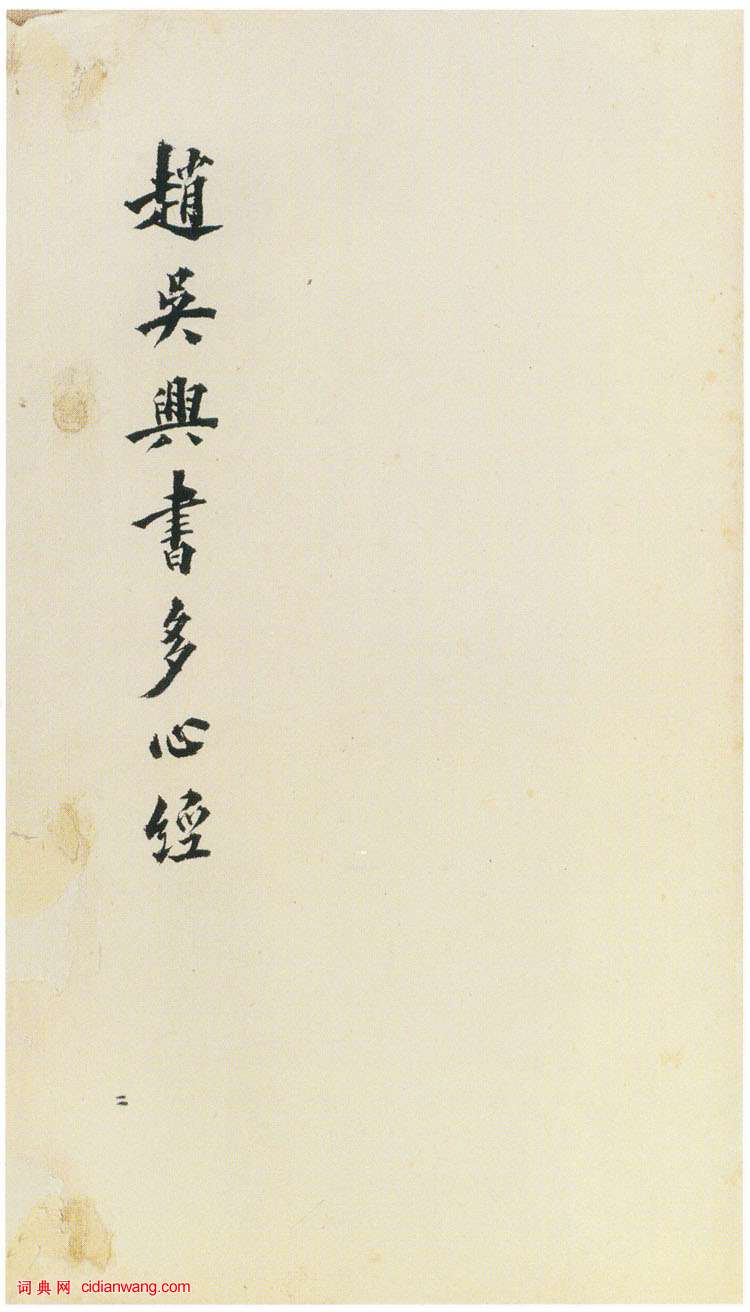 趙吳興書多心經
二
词典网 cidianwang.com